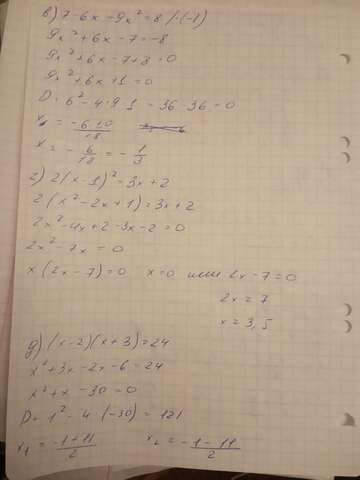 в) 7-6x-9x²=8 /·(-1)
9x²+6x-7=-8
9x²+6x-7+8=0
9x²+6x+1=0
D=6²-4·9·1=36-36=0
x = -6±0/18
x = -6/18 = -1/3
г) 2(x-1)²=3x+2
2(x²-2x+1)=3x+2
2x²-4x+2-3x-2=0
2x²-7x=0
x(2x-7)=0 x=0 или 2x-7=0
2x=7
x=3,5
д) (x-2)(x+3)=24
x²+3x-2x-6=24
x²+x-30=0
D=1²-4·(-30)=121
x₁ = -1+11/2 x₂ = -1-11/2